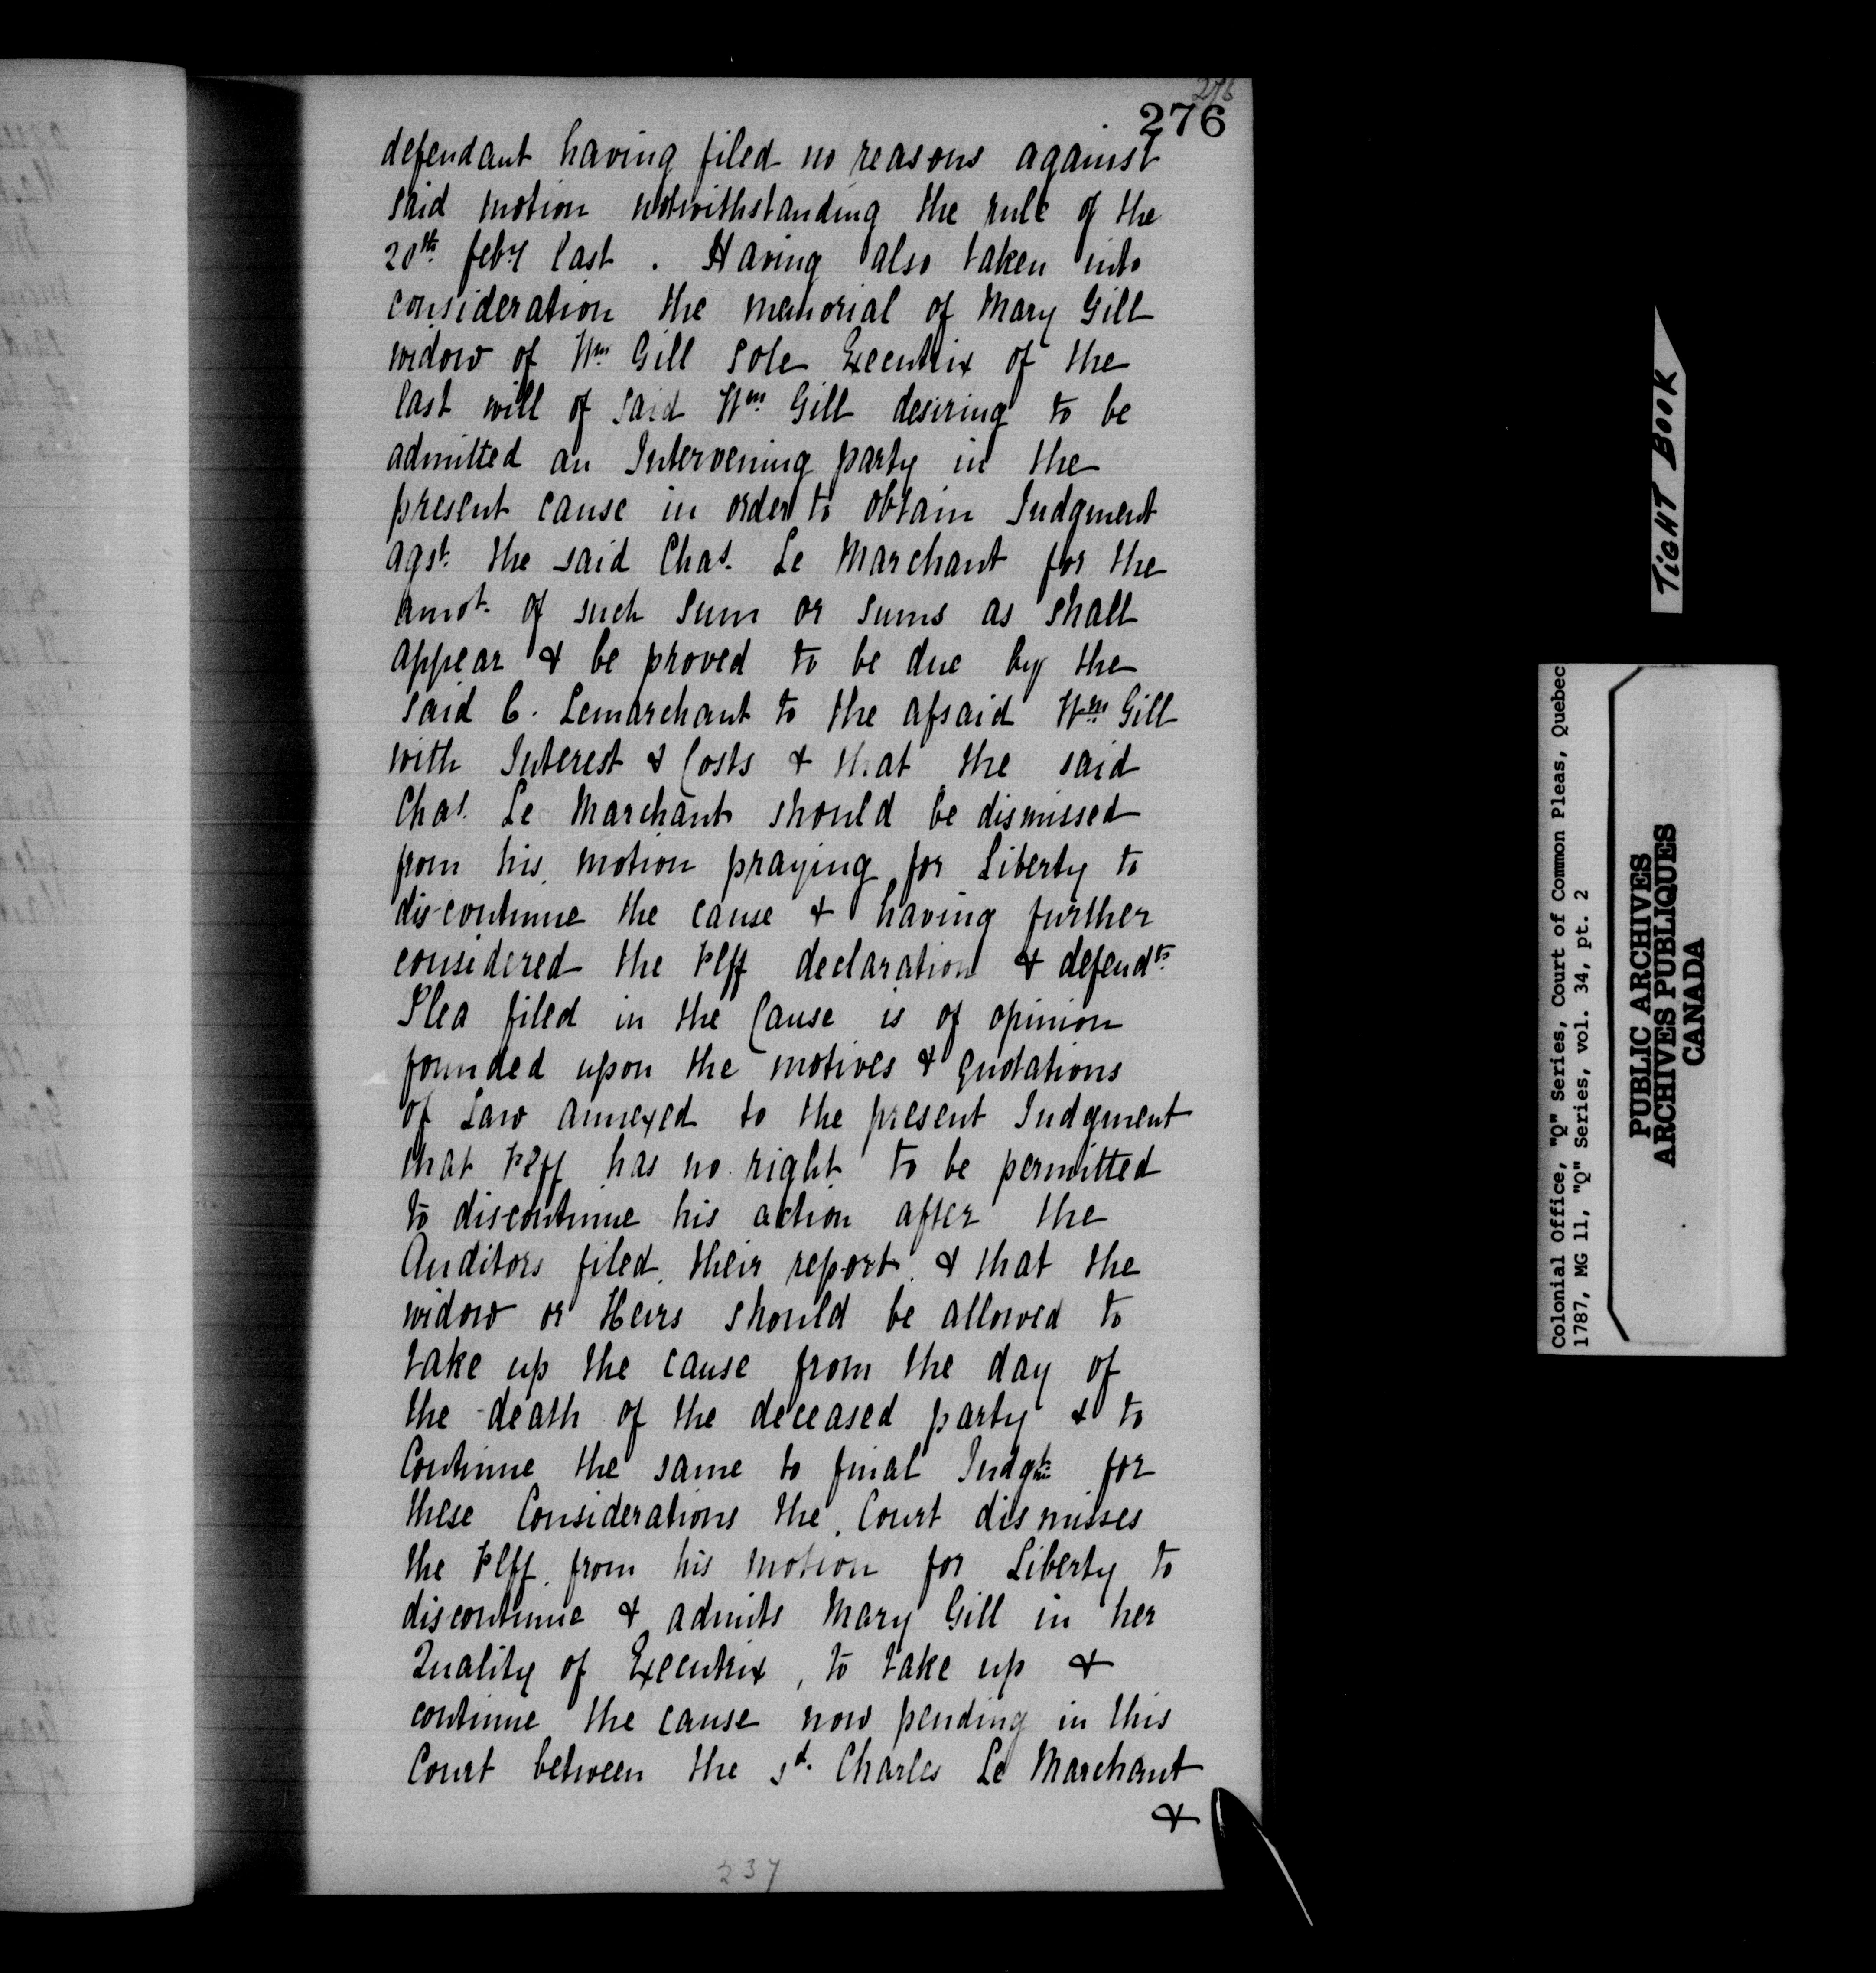 276
276
defendant having filed no reasons against
said motion notwithstanding the rule of the
20th feby last. Having also taken into
consideration the memorial of Mary Gill
widow of Wm Gill sole Executrix of the
last will of said Wm Gill desiring to be
admitted an Intervening party in the
present cause in order to obtain Judgment
agst. the said Chas. Le Marchant for the
amot. of such sum or sums as shall
appear & be proved to be due by the
said C. Lemarchant to the afsaid Wm Gill
with Interest & Costs & that the said
Chas. Le Marchant should be dismissed
from his motion praying for Liberty to
discontinue the cause & having further
considered the Plff declaration & defendts
Plea filed in the Cause is of opinion
founded upon the motives & quotations
of Law annexed to the present Judgment
that Plff has no right to be permitted
to discontinue his action after the
Auditors filed their report & that the
widow or Heirs should be allowed to
take up the cause from the day of
the death of the deceased party & to
Continue the same to final Judgt. for
these Considerations the Court dismisses
the Plff. from his motion for Liberty to
discontinue & admits Mary Gill in her
Quality of Executrix, to take up &
continue the cause now pending in this
Court between the sd. Charles Le Marchant
&
237
TIGHT BOOK
Colonial Office, "Q" Series, Court of Common Pleas, Quebec
1787, MG 11, "Q" Series, vol. 34, pt. 2
PUBLIC ARCHIVES
ARCHIVES PUBLIQUES
CANADA